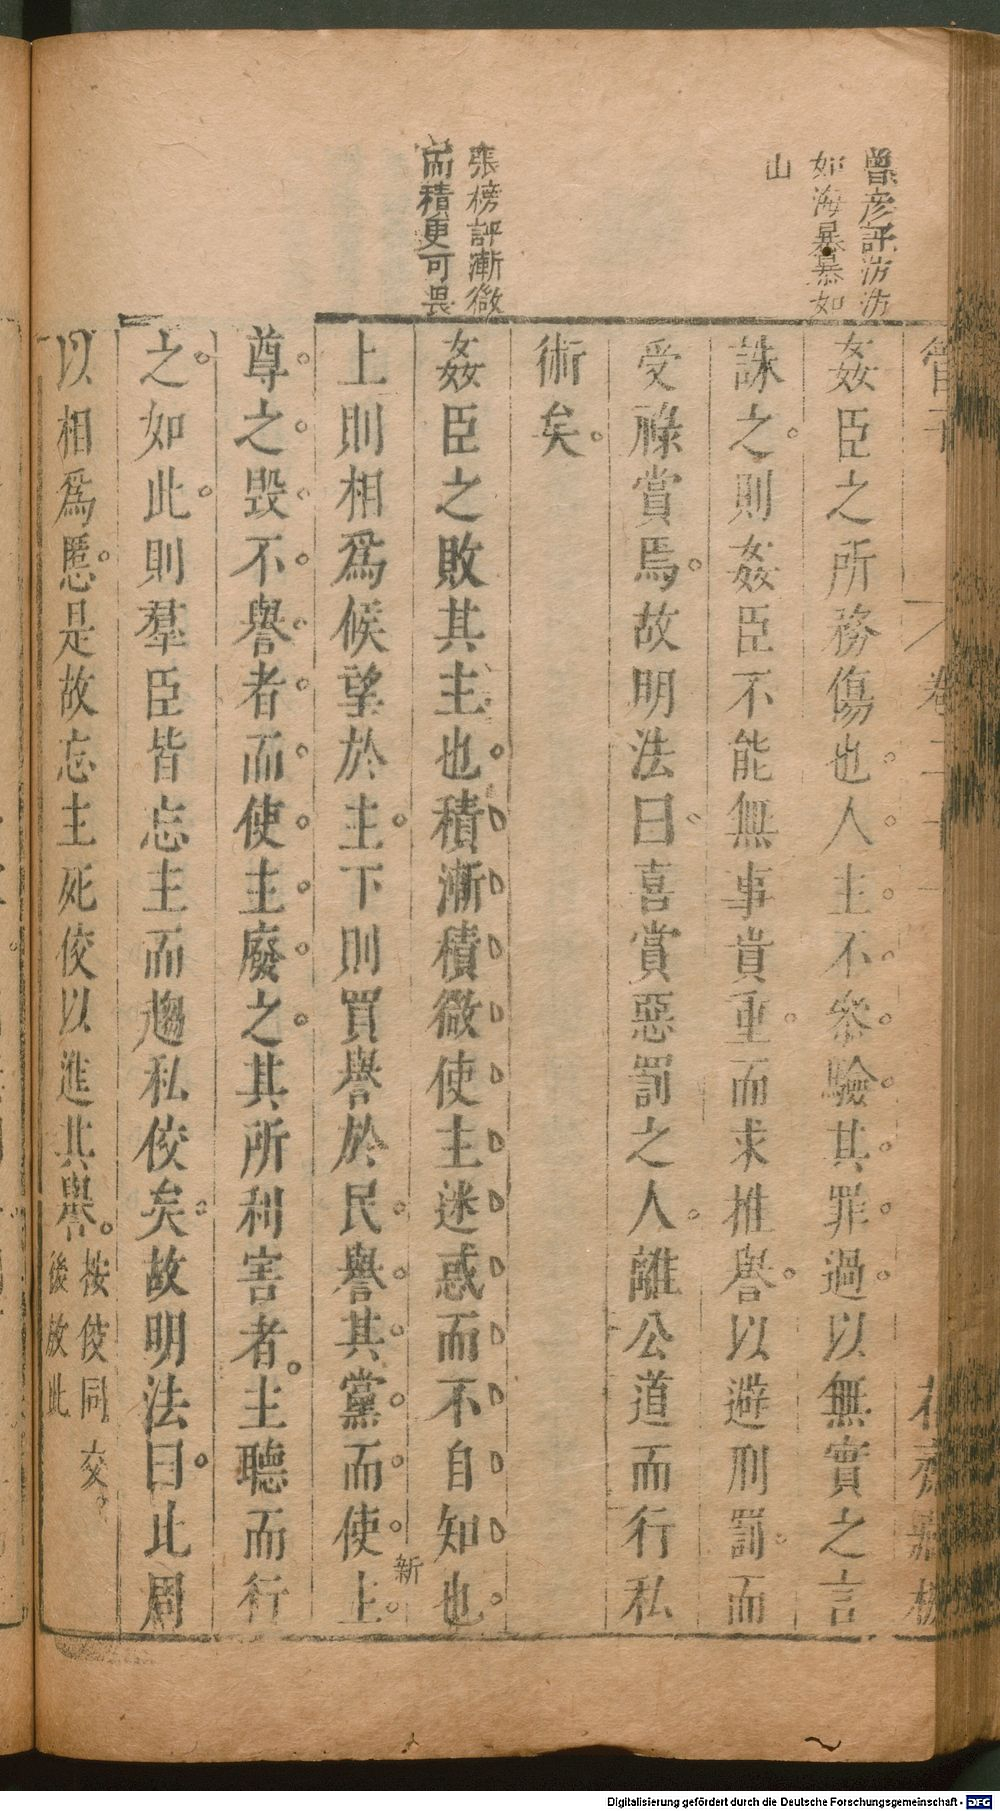 曾彥評汸汸
如海暴暴如
山
張榜評漸微
而積更可畏
管子
卷二十一
花齋藏板
姦臣之所務傷也人主不參驗其罪過以無實之言
誅之則姦臣不能無事貴重而求推譽以避刑罰而
受祿賞焉故明法曰喜賞惡罰之人離公道而行私
術矣
姦臣之敗其主也積漸積微使主迷惑而不自知也
上則相爲候望於主下則買譽於民譽其黨而使上
新
尊之毀不譽者而使主廢之其所利害者主聽而行
之如此則羣臣皆忘主而趨私佼矣故明法曰此周
以相爲慝是故忘主死佼以進其譽
按佼同交
後放此
Digitalisierung gefördert durch die Deutsche Forschungsgemeinschaft - DFG